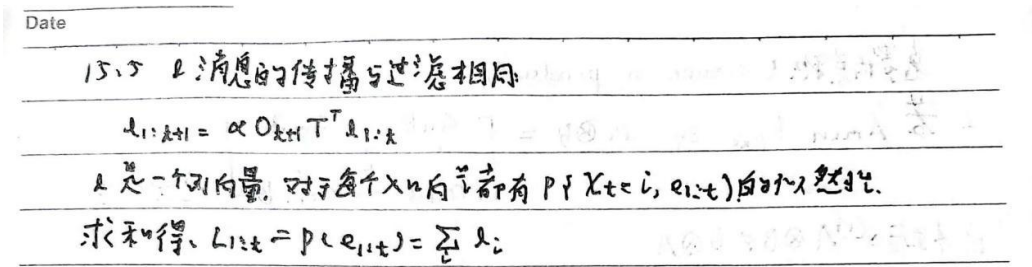 Date
15.5 l消息的传播与过滤相同:
l₁:ₖ₊₁ = α Oₖ₊₁ Tᵀ l₁:ₖ
l是一个列向量,对于每个Xₜ的 都有 P(Xₜ=i, e₁:ₜ)的似然性.
求和得、L₁:ₜ = P(e₁:ₜ) = ∑ᵢ lᵢ